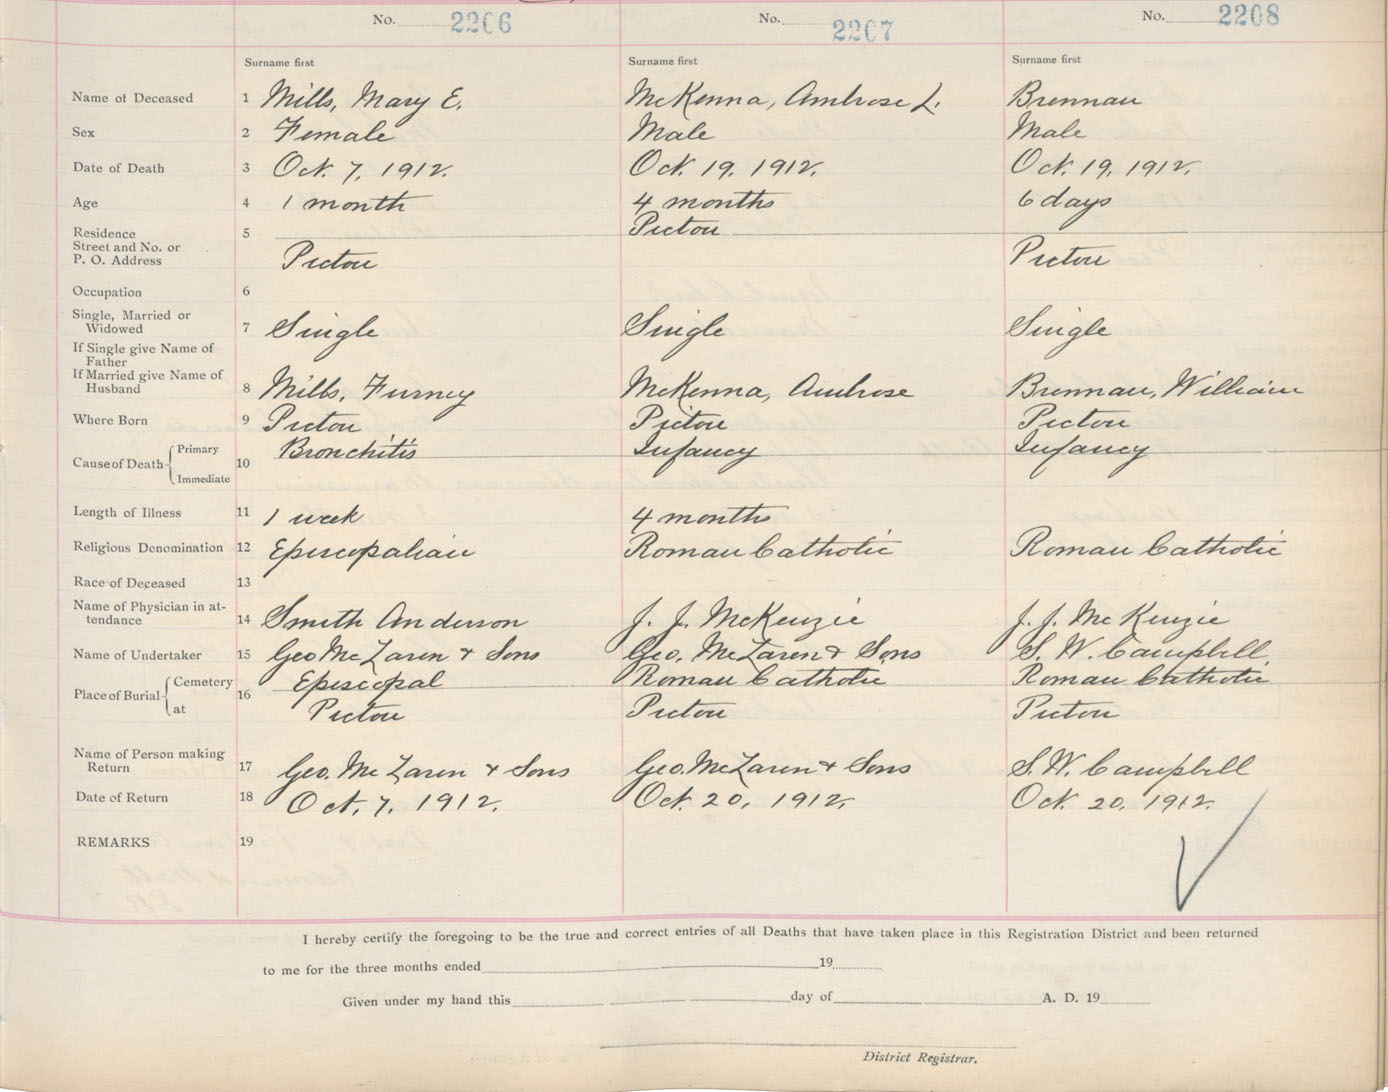 No. 2206 No. 2207 No. 2208
Surname first Surname first Surname first
Name of Deceased 1 Mills, Mary E. McKenna, Ambrose L. Brennan
Sex 2 Female Male Male
Date of Death 3 Oct. 7, 1912. Oct. 19, 1912. Oct. 19, 1912.
Age 4 1 month 4 months 6 days
Residence 5 Pictou
Street and No. or
P. O. Address Pictou Pictou
Occupation 6
Single, Married or
Widowed 7 Single Single Single
If Single give Name of
Father
If Married give Name of
Husband 8 Mills, Furney McKenna, Ambrose Brennan, William
Where Born 9 Pictou Pictou Pictou
Cause of Death Primary 10 Bronchitis Infancy Infancy
Immediate
Length of Illness 11 1 week 4 months
Religious Denomination 12 Episcopalian Roman Catholic Roman Catholic
Race of Deceased 13
Name of Physician in at-
tendance 14 Smith Anderson J. J. McKenzie J. J. McKenzie
Name of Undertaker 15 Geo McLaren & Sons Geo. McLaren & Sons S. W. Campbell
Place of Burial Cemetery 16 Episcopal Roman Catholic Roman Catholic
at Pictou Pictou Pictou
Name of Person making
Return 17 Geo. McLaren & Sons Geo. McLaren & Sons S. W. Campbell
Date of Return 18 Oct. 7, 1912. Oct. 20, 1912. Oct. 20, 1912.
REMARKS 19
I hereby certify the foregoing to be the true and correct entries of all Deaths that have taken place in this Registration District and been returned
to me for the three months ended 19
Given under my hand this day of A. D. 19
District Registrar.